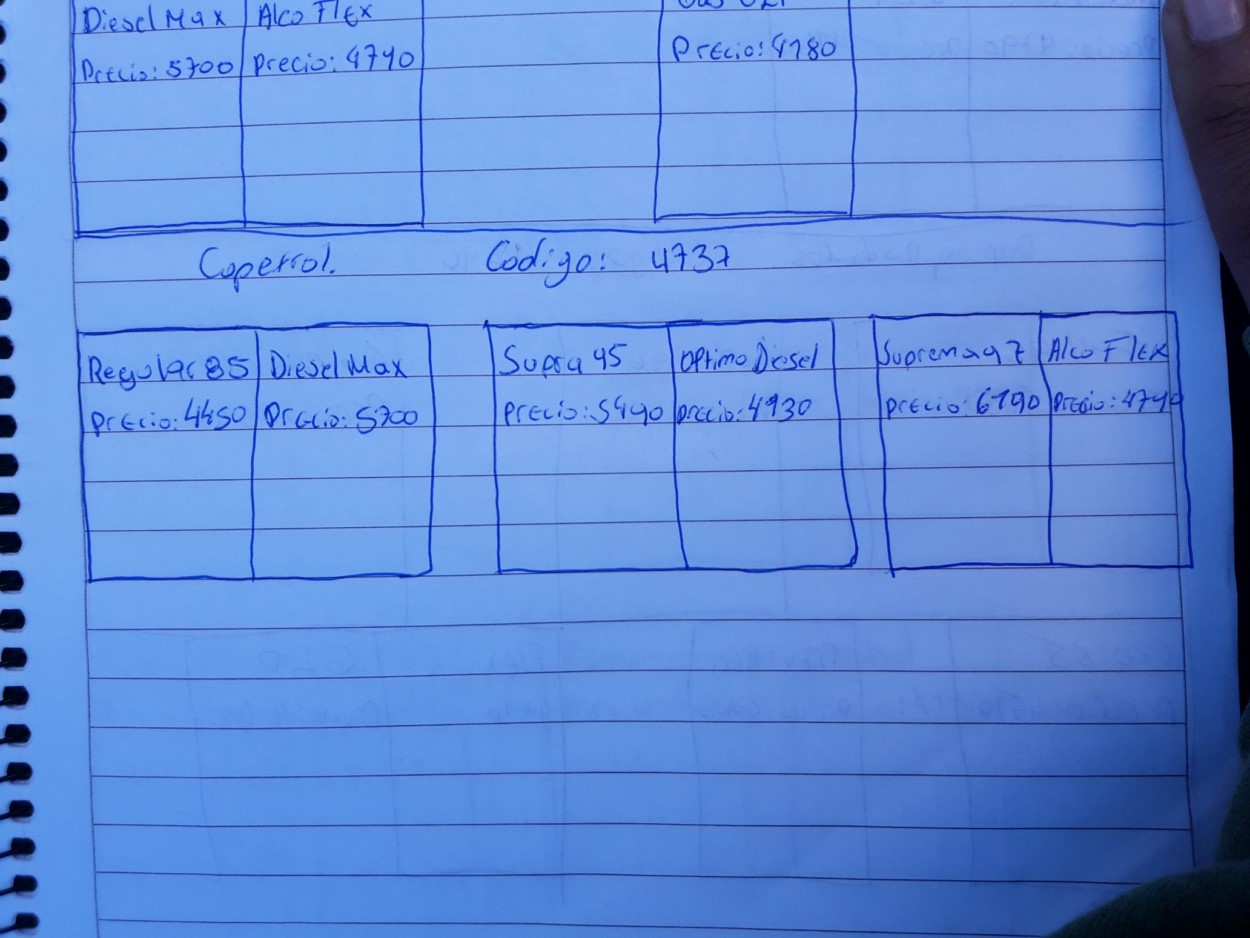 Diesel Max Alco Flex
Precio: 5700 Precio: 4740 Precio: 4180
Copetrol. Código: 4737
Regular 85 Diesel Max Supra 95 Optimo Diesel Suprema 97 Alco Flex
Precio: 4450 Precio: 5700 Precio: 5490 Precio: 4930 Precio: 6190 Precio: 4740